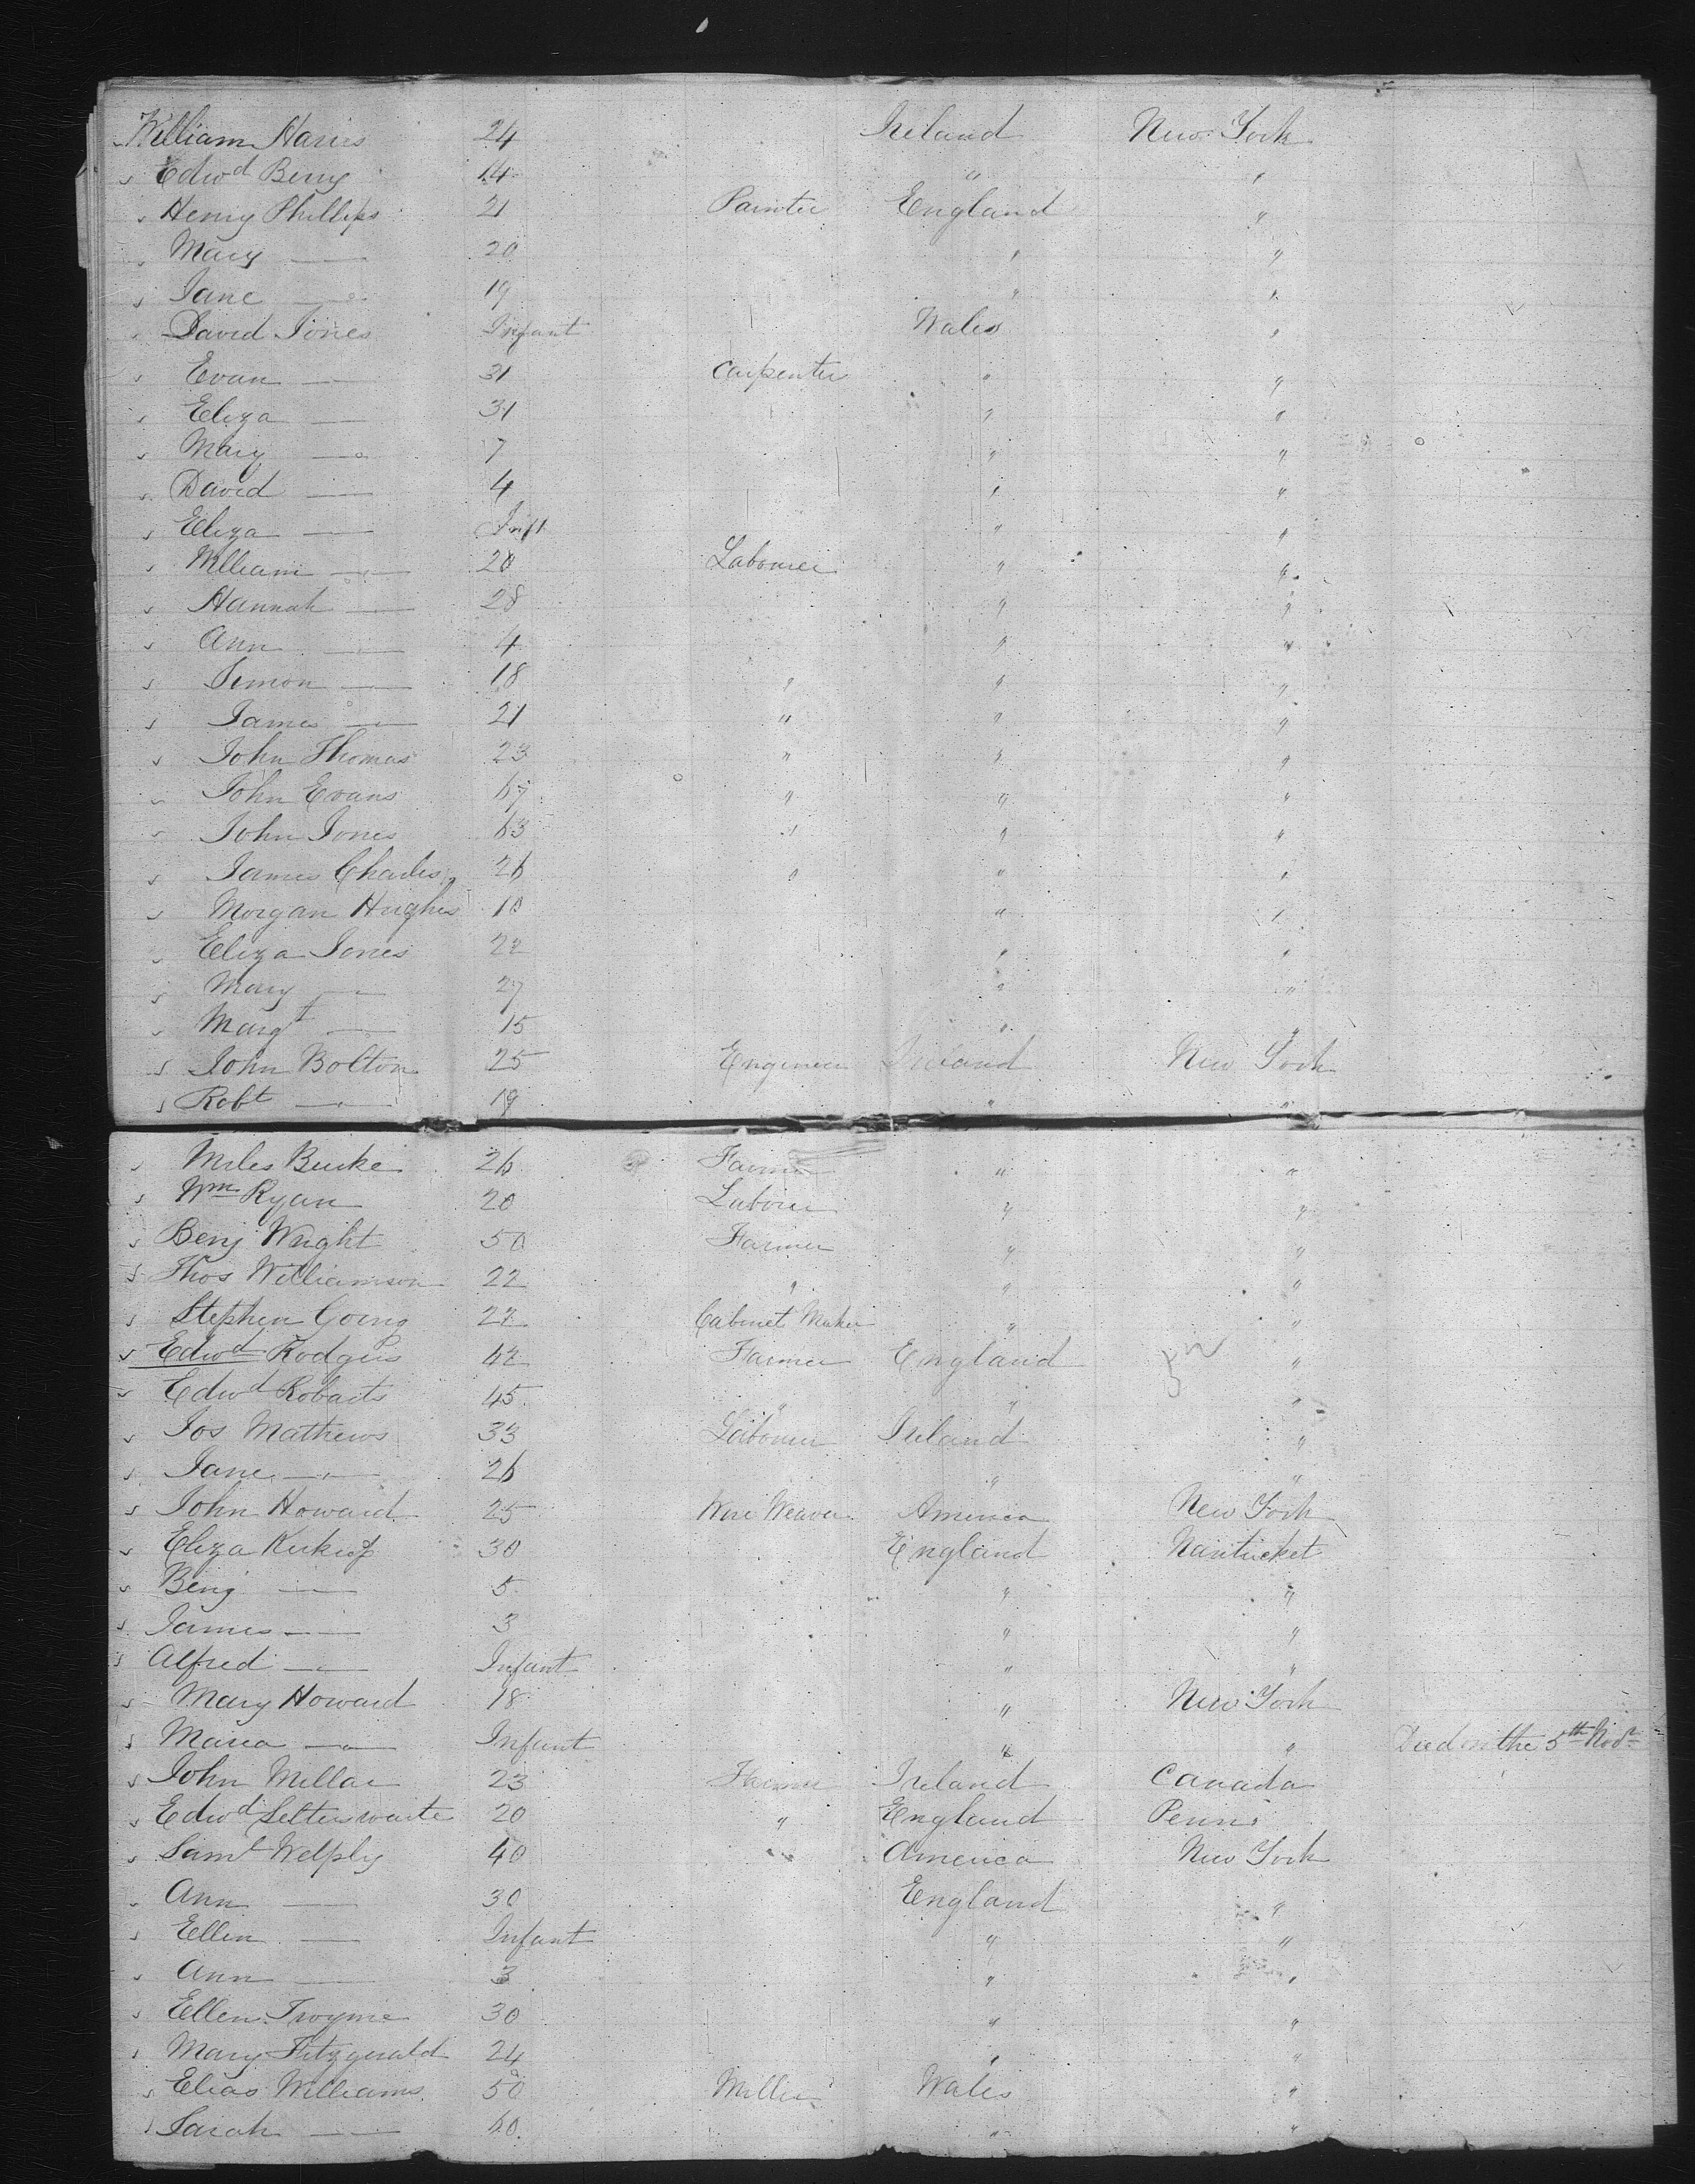 William Harris 24 Ireland New York
Edwd Berry 14 " "
Henry Phillips 21 Painter England "
Mary — 20 " "
Jane — 19 " "
David Jones Infant Wales "
Evan — 31 Carpenter " "
Eliza — 31 " "
Mary — 7 " "
David — 4 " "
Eliza — Inft " "
William — 28 Labourer " "
Hannah — 28 " "
Ann — 4 " "
Simon — 18 " " "
James — 21 " " "
John Thomas 23 " " "
John Evans 67 " " "
John Jones 63 " " "
James Charles 26 " " "
Morgan Hughes 10 " "
Eliza Jones 22 " "
Mary — 27 " "
Margt — 15 " "
John Bolton 25 Engineer Ireland New York
Robt — 19 " "
Miles Burke 26 Farmer " "
Wm Ryan 20 Labourer " "
Benj Wright 50 Farmer " "
Thos Williamson 22 " " "
Stephen Going 22 Cabinet Maker " "
Edwd Rodgers 42 Farmer England "
Edwd Robarts 45 " " "
Jos Mathews 33 Labourer Ireland "
Jane — 26 " "
John Howard 25 Wire Weaver America New York
Eliza 30 England Nantucket
Benj — 5 " "
James — 3 " "
Alfred — Infant " "
Mary Howard 18 " New York
Maria — Infant " " Died on the 5th Novr
John Millar 23 Farmer Ireland Canada
Edwd Setterswaite 20 " England Penn
Saml Welply 40 " America New York
Ann — 30 England "
Ellen — Infant " "
Ann — 3 " "
Ellen Twyme 30 " "
Mary Fitzgerald 24 " "
Elias Williams 50 Miller Wales "
Sarah — 60 " "